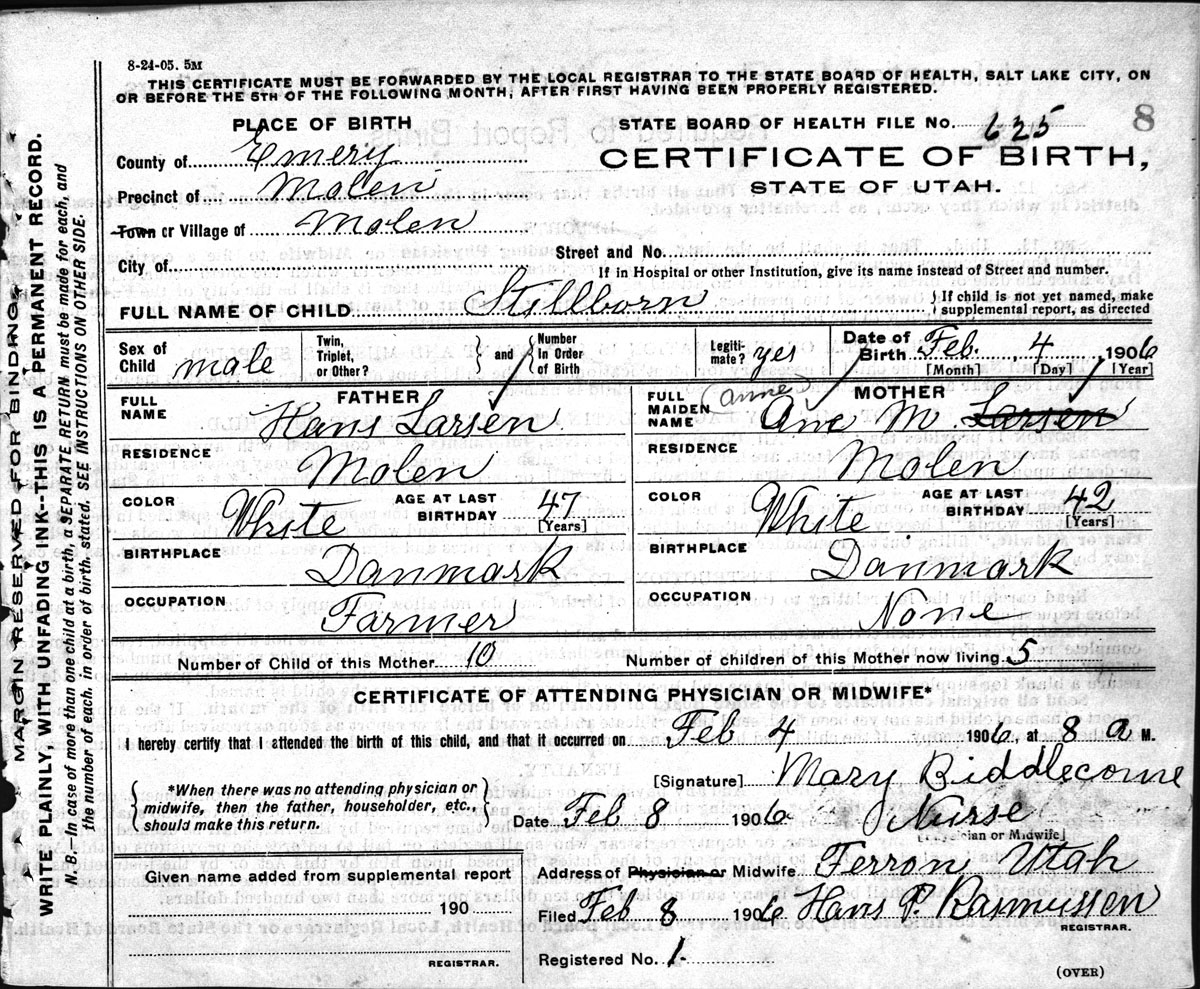 8-24-05. 5M
THIS CERTIFICATE MUST BE FORWARDED BY THE LOCAL REGISTRAR TO THE STATE BOARD OF HEALTH, SALT LAKE CITY, ON
OR BEFORE THE 5TH OF THE FOLLOWING MONTH, AFTER FIRST HAVING BEEN PROPERLY REGISTERED.
8
PLACE OF BIRTH
STATE BOARD OF HEALTH FILE No. 625
County of Emery
CERTIFICATE OF BIRTH,
Precinct of Molen
STATE OF UTAH.
Town or Village of Molen
Street and No.
City of
If in Hospital or other Institution, give its name instead of Street and number.
FULL NAME OF CHILD Stillborn { If child is not yet named, make
supplemental report, as directed
Sex of Child male
Twin, Triplet, or Other? } and { Number In Order of Birth
Legiti-mate? yes
Date of Birth Feb. 4, 1906
[Month] [Day] [Year]
FATHER
FULL NAME Hans Larsen
RESIDENCE Molen
COLOR White AGE AT LAST BIRTHDAY 47 [Years]
BIRTHPLACE Danmark
OCCUPATION Farmer
MOTHER
FULL MAIDEN NAME (Anne) Ane M. Larsen
RESIDENCE Molen
COLOR White AGE AT LAST BIRTHDAY 42 [Years]
BIRTHPLACE Danmark
OCCUPATION None
Number of Child of this Mother 10 Number of children of this Mother now living 5
CERTIFICATE OF ATTENDING PHYSICIAN OR MIDWIFE*
I hereby certify that I attended the birth of this child, and that it occurred on Feb 4 1906, at 8 a M.
{ *When there was no attending physician or
midwife, then the father, householder, etc.,
should make this return. }
[Signature] Mary Biddlecome
Date Feb 8 1906 Nurse
[Physician or Midwife]
Given name added from supplemental report
190
REGISTRAR.
Address of Physician or Midwife Ferron Utah
Filed Feb 8 1906 Hans P. Rasmussen
REGISTRAR.
Registered No. 1-
(OVER)
MARGIN RESERVED FOR BINDING.
WRITE PLAINLY, WITH UNFADING INK--THIS IS A PERMANENT RECORD.
N. B.—In case of more than one child at a birth, a SEPARATE RETURN must be made for each, and
the number of each, in order of birth, stated. SEE INSTRUCTIONS ON OTHER SIDE.